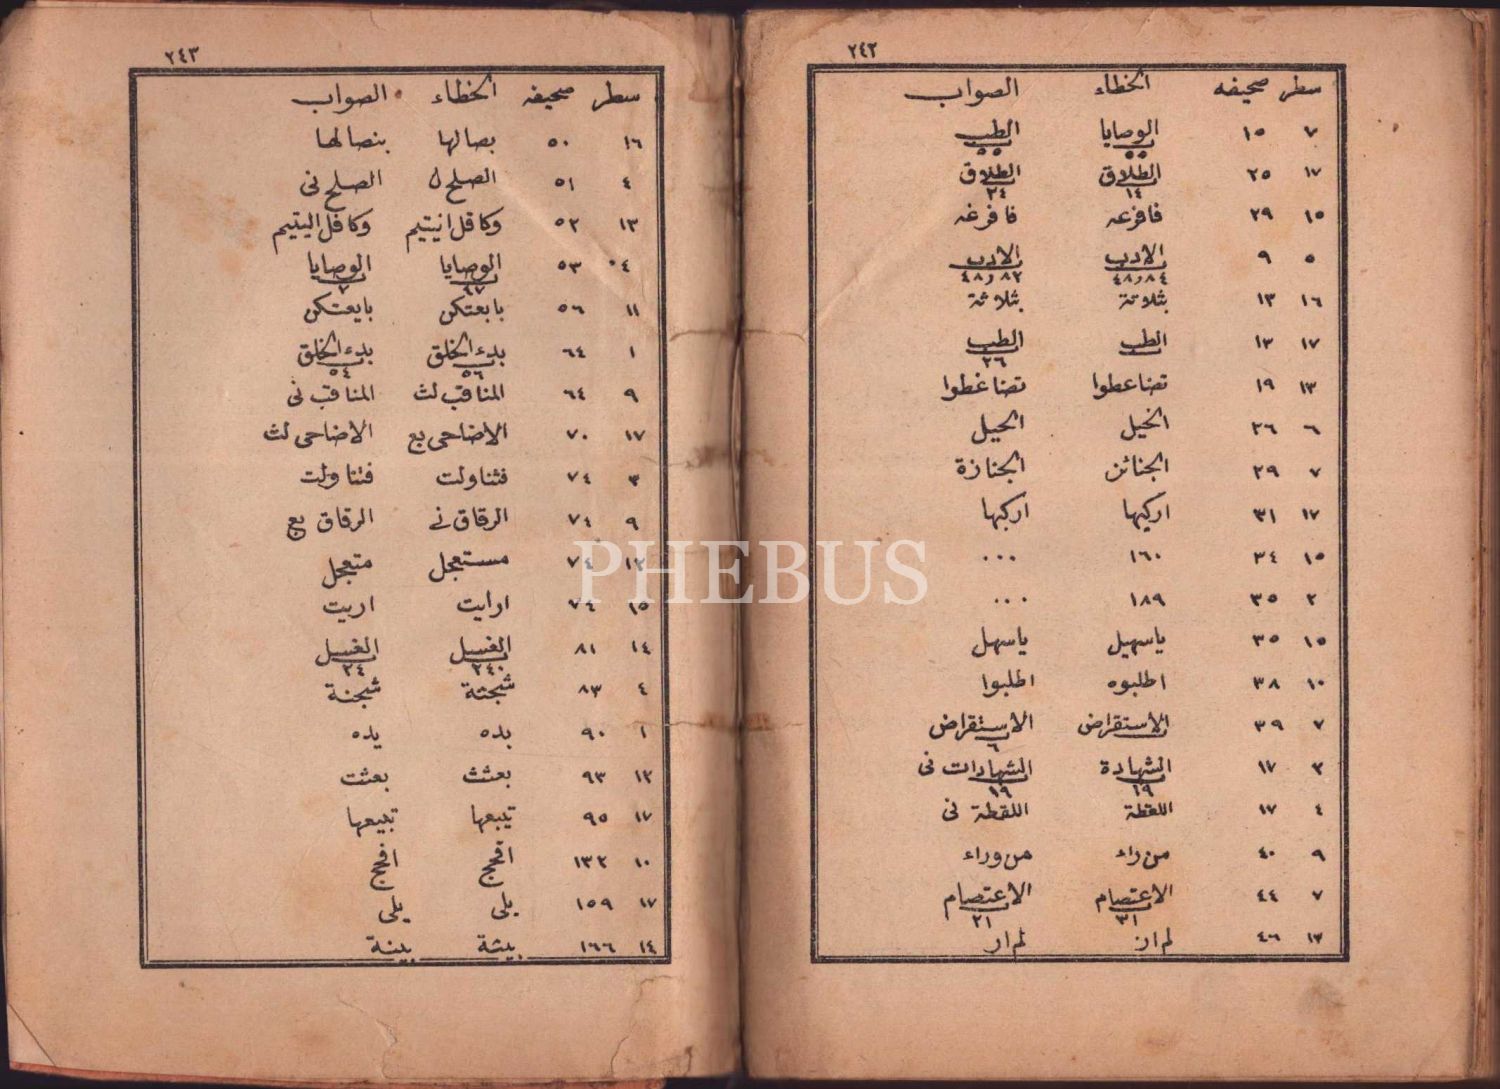 ٢٤٢
سطر صحيفه الخطاء الصواب
٧ ١٥ الوصايا ٥٥ الطب ٥٥
١٧ ٢٥ الطلاق ١٤ الطلاق ٢٤
١٥ ٢٩ فافزعه فافرغه
٥ ٩ الادب ٤٨،٨٤ الادب ٤٨،٨٢
١٦ ١٣ بثلاتة بثلاثة
١٧ ١٣ الطب الطب ٢٦
١٣ ١٩ تضاعطوا تضاغطوا
٦ ٢٦ الخيل الحيل
٧ ٢٩ الجنائن الجنازة
١٧ ٣١ اركيها اركبها
١٥ ٣٤ ١٦٠ ...
٢ ٣٥ ١٨٩ ...
١٥ ٣٥ ياسهيل ياسهل
١٠ ٣٨ اطلبوه اطلبوا
٧ ٣٩ الاستقراض الاستقراض ٦
٣ ١٧ الشهادة ١٩ الشهادات نى ١٩
٤ ١٧ اللقطة اللقطة نى
٩ ٤٠ من راء من وراء
٧ ٤٤ الاعتصام ٣١ الاعتصام ٢١
١٣ ٤٦ لم ان لم ار
٢٤٣
سطر صحيفه الخطاء الصواب
١٦ ٥٠ بصالها بنصالها
٤ ٥١ الصلح ل الصلح نى
١٣ ٥٢ وكاقل انيتيم وكافل اليتيم
٤ ٥٣ الوصايا ٦٧ الوصايا ٧
١١ ٥٦ بابعتكن بايعتكن
١ ٦٤ بدء الخلق ٥٦ بدء الخلق ٥٤
٩ ٦٤ المناقب لث المناقب نى
١٧ ٧٠ الاضاحى بع الاضاحى لث
٣ ٧٤ فثناولت فتناولت
٩ ٧٤ الرقاق نى الرقاق بع
١٢ ٧٤ مستعجل متعجل
١٥ ٧٤ ارايت اريت
١٤ ٨١ الغسل ٢٤٠ الغسل ٢٤
٤ ٨٣ شجثة شجنة
١ ٩٠ بده يده
١٢ ٩٣ بعثث بعثت
١٧ ٩٥ تيبعها تبيعها
١٠ ١٣٢ افحج افحج
١٧ ١٥٩ بلى يلى
١٤ ١٦٦ بيثة بينة
PHEBUS